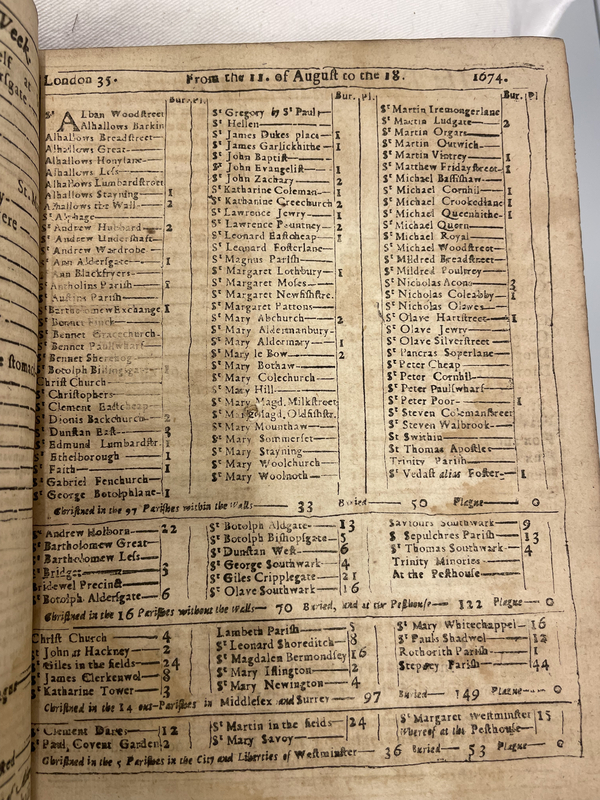 London 35. From the 11. of August to the 18. 1674.
Bur. Pl.
St Alban Woodstreet
Alhallows Barkin
Alhallows Breadstreet
Alhallows Great
Alhallows Honylane
Alhallows Less
Alhallows Lumbardstreet
Alhallows Stayning 1
Alhallows the Wall 2
St Alphage
St Andrew Hubbard 2
St Andrew Undershaft
St Andrew Wardrobe
St Ann Aldersgate 1
St Ann Blackfryers
St Antholins Parish 1
St Austins Parish
St Bartholomew Exchange 1
St Bennet Finck
St Bennet Gracechurch
St Bennet Paulswharf
St Bennet Sherehog
St Botolph Billingsgate
Christ Church
St Christophers
St Clement Eastcheap
St Dionis Backchurch 2
St Dunstan East 3
St Edmund Lumbardstr. 1
St Ethelborough 1
St Faith 1
St Gabriel Fenchurch
St George Botolphlane 1
Bur. Pl.
St Gregory by St Pauls
St Hellen
St James Dukes place 1
St James Garlickhithe 1
St John Baptist
St John Evangelist 1
St John Zachary 2
St Katharine Coleman 1
St Katharine Creechurch 2
St Lawrence Jewry 1
St Lawrence Pountney 2
St Leonard Eastcheap 1
St Leonard Fosterlane
St Magnus Parish
St Margaret Lothbury 1
St Margaret Moses
St Margaret Newfishstre.
St Margaret Pattons
St Mary Abchurch 2
St Mary Aldermanbury
St Mary Aldermary 1
St Mary le Bow 2
St Mary Bothaw
St Mary Colechurch
St Mary Hill
St Mary Magd. Milkstreet
St Mary Magd. Oldfishstr.
St Mary Mounthaw
St Mary Sommerset
St Mary Stayning
St Mary Woolchurch
St Mary Woolnoth
Bur. Pl
St Martin Iremongerlane
St Martin Ludgate 2
St Martin Orgars
St Martin Outwich
St Martin Vintrey 1
St Matthew Fridaystreet 1
St Michael Bassishaw
St Michael Cornhil 1
St Michael Crookedlane 1
St Michael Queenhithe 1
St Michael Quern
St Michael Royal
St Michael Woodstreet
St Mildred Breadstreet
St Mildred Poultrey
St Nicholas Acons
St Nicholas Coleabby 1
St Nicholas Olaves
St Olave Hartstreet 1
St Olave Jewry
St Olave Silverstreet
St Pancras Soperlane
St Peter Cheap
St Peter Cornhil
St Peter Paulswharf
St Peter Poor 1
St Steven Colemanstreet
St Steven Walbrook
St Swithin
St Thomas Apostles
Trinity Parish
St Vedast alias Foster 1
Christned in the 97 Parishes within the Walls 33 Buried 50 Plague 0
St Andrew Holborn 22
St Bartholomew Great
St Bartholomew Less
St Bridget
Bridewel Precinct
St Botolph Aldersgate 6
St Botolph Aldgate 13
St Botolph Bishopsgate 5
St Dunstan West 6
St George Southwark 4
St Giles Cripplegate 21
St Olave Southwark 16
Saviours Southwark 9
S Sepulchres Parish 13
St Thomas Southwark 4
Trinity Minories
At the Pesthouse
Christned in the 16 Parishes without the Walls 70 Buried, and at the Pesthouse 122 Plague 0
Christ Church 4
St John at Hackney 2
St Giles in the fields 24
St James Clerkenwel 8
St Katharine Tower 3
Lambeth Parish 5
St Leonard Shoreditch 8
St Magdalen Bermondsey 16
St Mary Islington 2
St Mary Newington 4
St Mary Whitechappel 16
St Pauls Shadwel 12
Rothorith Parish 1
Stepney Parish 44
Christned in the 14 out-Parishes in Middlesex and Surrey 97 Buried 149 Plague 0
St Clement Danes 12
St Paul, Covent Garden 2
St Martin in the fields 24
St Mary Savoy
St Margaret Westminster 15
Whereof at the Pesthouse
Christned in the 5 Parishes in the City and Liberties of Westminster 36 Buried 53 Plague 0